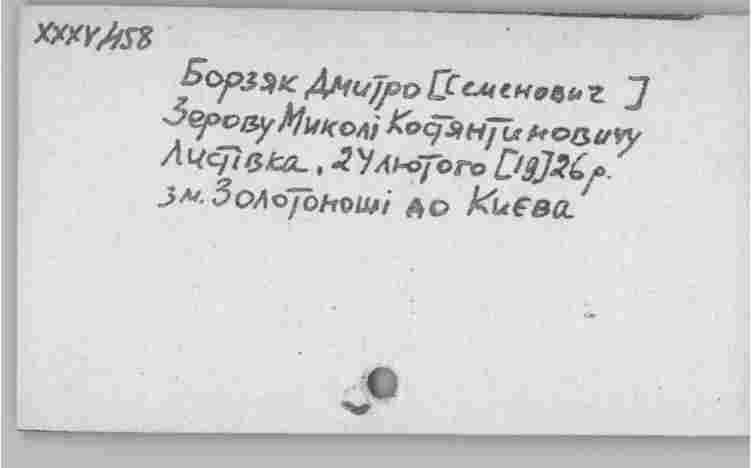 XXXV/158
Борзяк Дмитро [Семенович ]
Зерову Миколі Костянтиновичу
Листівка, 24 лютого [19]26 р.
з м. Золотоноші до Києва